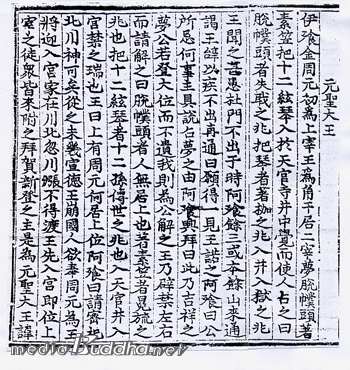 元聖大王
伊飡金周元初為上宰王為角干居二宰夢脫幞頭著
素笠把十二絃琴入於天官寺井中覺而使人占之曰
脫幞頭者失職之兆把琴者著枷之兆入井入獄之兆
王聞之甚患杜門不出于時阿飡餘三或本餘山來通
謁王辭以疾不出再通曰願得一見王諾之阿飡曰公
所忌何事王具說占夢之由阿飡興拜曰此乃吉祥之
夢公若登大位而不遺我則為公解之王乃辟禁左右
而請解之曰脫幞頭者人無居上也著素笠者冕旒之
兆也把十二絃琴者十二孫傳世之兆也入天官井入
宮禁之瑞也王曰上有周元何居上位阿飡曰請密祀
北川神可矣從之未幾宣德王崩國人欲奉周元為王
將迎入宮家在川北忽川漲不得渡王先入宮即位上
宰之徒衆皆來附之拜賀新登之主是為元聖大王諱
mediaBuddha.net